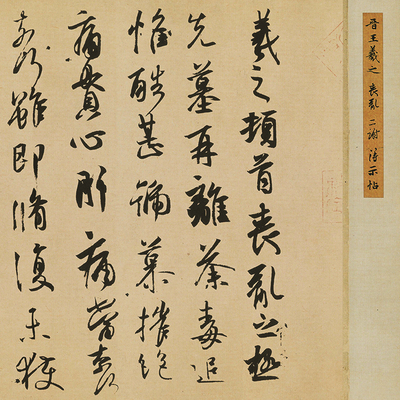 晉王羲之 喪亂 二謝 得示帖
羲之頓首喪亂之極
先墓再離荼毒追
惟酷甚號慕摧絕
痛貫心肝痛當奈何
奈何雖即脩復未獲